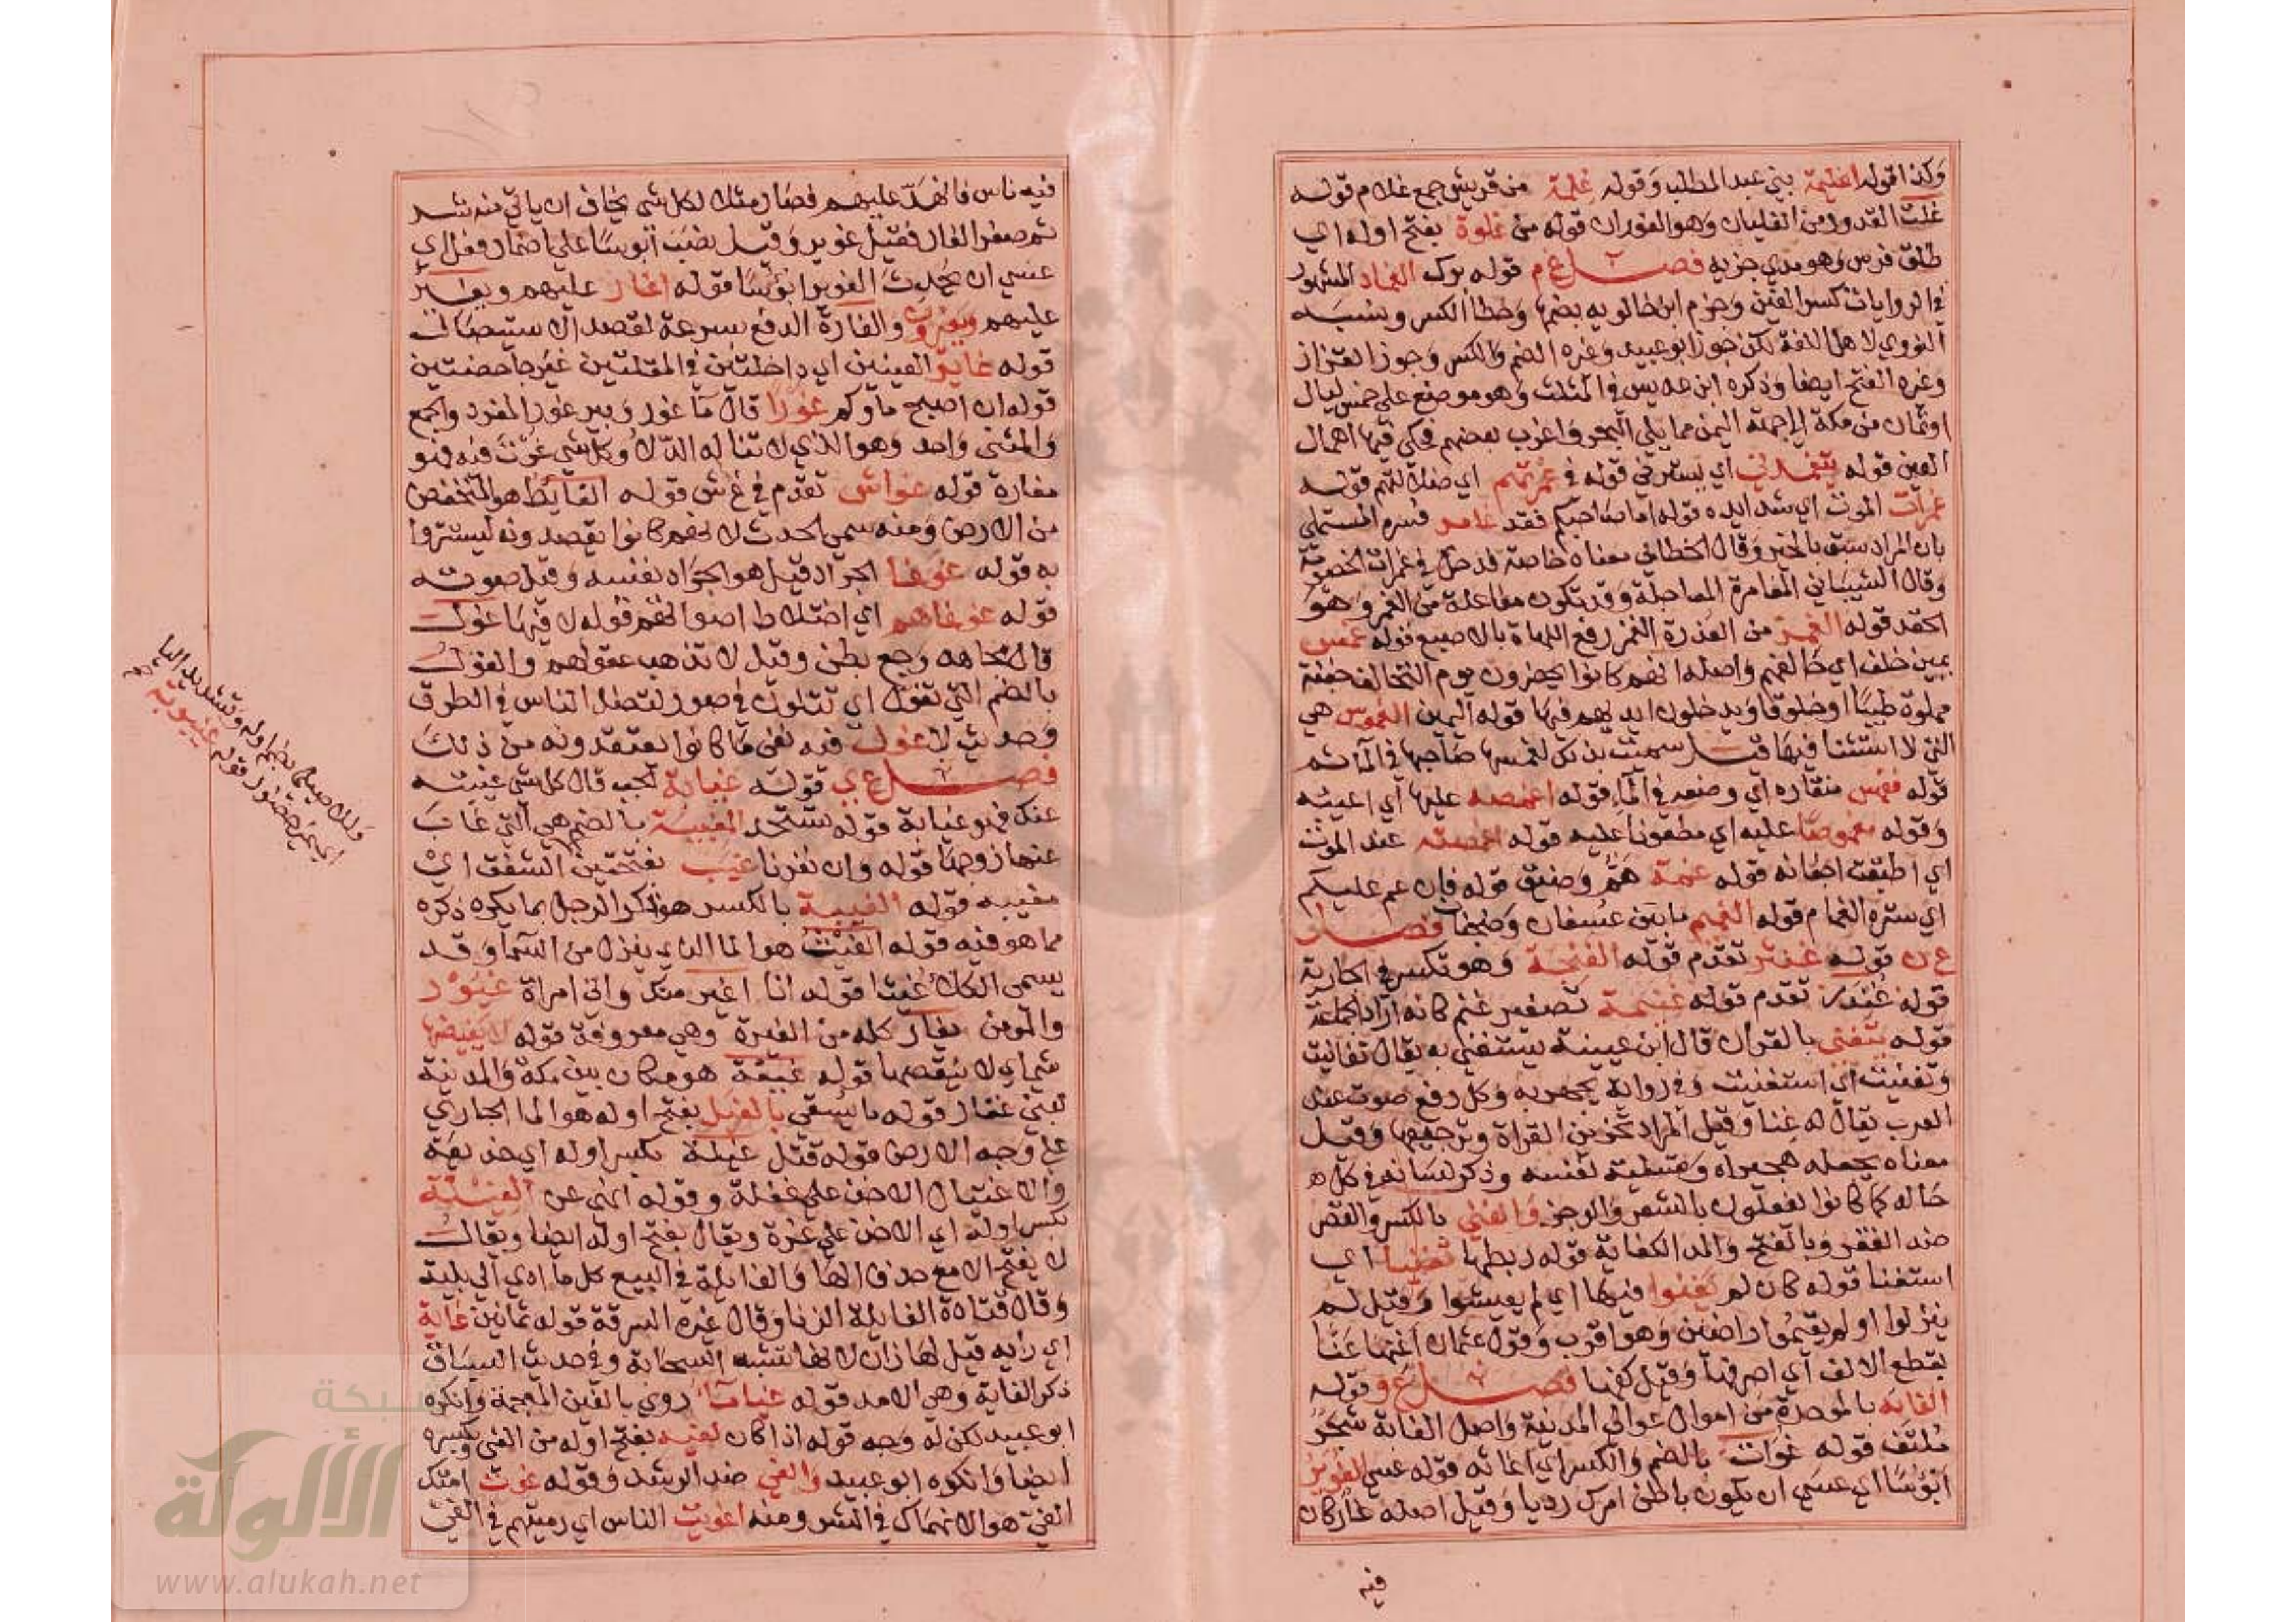 وكذا قوله اغيلمة بني عبد المطلب وقوله غلمة من قريش جمع غلام قوله
غلت القدور من الغليان وهو الفوران قوله من غلوة بفتح اوله اي
طلق فرس وهو مدي جريه فصل غ م قوله برك الغماد المشهور
في الروايات كسر الغين وجزم ابن خالويه بضمها وخطا الكسر ونسبه
النووي لاهل اللغة لكن جوز ابو عبيد وغيره الضم والكسر وجوز القزاز
وغيره الفتح ايضا وذكره ابن عديس في المثلث وهو موضع علي خمس ليال
او ثمان من مكة الي جهة اليمن مما يلي البحر واغرب بعضهم فحكي فيها اهمال
العين قوله يتغمدني اي يسترني قوله في غمرتهم اي ضلالتهم قوله
غمرات الموت اي شدايده قوله اما صاحبكم فقد غامر فسره المستملي
بان المراد سبق بالخير وقال الخطابي معناه خاصم فدخل في غمرات الخصومة
وقال الشيباني المغامرة المعاجلة وقد تكون مفاعلة من الغمر وهو
الحقد قوله الغمز من العذرة الغمز رفع اللهاة بالاصبع قوله غمس
يمين حلف اي حالفهم واصله انهم كانوا يحضرون يوم التحالف جفنة
مملوة طيبا او خلوقا ويدخلون ايديهم فيها قوله اليمين الغموس هي
التي لا استثنا فيها قيل سميت بذلك لغمسها صاحبها في المآثم
قوله فغمس منقاره اي وضعه في الما قوله اغمصه عليها اي اعيبه
وقوله مغموصا عليه اي مطعونا عليه قوله اغمضته عند الموت
اي اطبقت اجفانه قوله غمة هم وضيق قوله فان غم عليكم
اي ستره الغمام قوله الغميم ما بين عسفان وضجنان فصل
غ ن قوله غنثر تقدم قوله الغنجة وهو تكسر في الجارية
قوله غندر تقدم قوله غنيمة تصغير غنم كانه اراد الجماعة
قوله يتغني بالقران قال ابن عيينة يستغني به يقال تغانيت
وتغنيت اي استغنيت وفي رواية يجهر به وكل رفع صوت عند
العرب يقال له غنا وقيل المراد تحزين القراة وترجيعها وقيل
معناه يجعله هجيراه وتسلية لنفسه وذكر لسانه في كل
حاله كما كانوا يفعلون بالشعر والرجز والغني بالكسر والقصر
ضد الفقر وبالفتح والمد الكفاية قوله ربطها تغنيا اي
استغنا قوله كان لم يغنوا فيها اي لم يعيشوا وقيل لم
ينزلوا او لم يقيموا راضين وهو اقرب وقول عثمان اغنها عنا
بقطع الالف اي اصرفها وقيل كفها فصل غ و قوله
الغابه بالموحدة من اموال عوالي المدينة واصل الغابة شجر
ملتف قوله غوات بالضم والكسر اي اغاثه قوله عسي الغوير
ابؤسا اي عسي ان يكون باطن امرك رديا وقيل اصله غار كان
فيه
فيه ناس فانهد عليهم فصار مثلا لكل شي يخاف ان ياتي منه شر
ثم صغر الغار فقيل غوير وقيل نصب ابؤسا علي اضمار فعل اي
عسي ان يحدث الغوير ابؤسا قوله اغار عليهم ويغير
عليهم والغارة الدفع بسرعة لقصد الاستيصال
قوله غاير العينين اي داخلتين في المقلتين غير جاحظتين
قوله ان اصبح ماوكم غورا قال ما غور وبير غور المفرد والجمع
والمثني واحد وهو الذي لا تناله الدلا وكل شي غرت فيه فهو
مغارة قوله غواش تقدم في غ ش قوله الغايط هو المنخفض
من الارض ومنه سمي الحدث لانهم كانوا يقصدونه ليستتروا
به قوله غوغا الجراد قيل هو الجراد نفسه وقيل صوته
قوله غوغاهم اي اختلاط اصواتهم قوله لا فيها غول
قال مجاهد وجع بطن وقيل لا تذهب عقولهم والغول
بالضم التي تغول اي تتلون في صور لتضل الناس في الطرق
وحديث لا غول فيه نفي ما كانوا يعتقدونه من ذلك
فصل غ ي قوله غيابة الجب قال كل شي غيبته
عنك فهو غيابة قوله تستحد المغيبة بالضم هي التي غاب
عنها زوجها قوله وان نفرنا غيب بفتحتين الشفق اي
مغيبه قوله الغيبة بالكسر هو ذكر الرجل بما يكره ذكره
مما هو فيه قوله الغيث هو الما الذي ينزل من السما وقد
يسمي الكلا غيثا قوله انا اغير منك واني امراة غيور
والمومن يغار كله من الغيرة وهي معروفة قوله لا يغيضها
شي اي لا ينقصها قوله غيقة هو مكان بين مكة والمدينة
لبني غفار قوله ما يسقي بالغيل بفتح اوله هو الما الجاري
علي وجه الارض قوله قتل غيلة بكسر اوله اي خديعة
والاغتيال الاخذ علي غفلة وقوله انهي عن الغيلة
بكسر اوله اي الاخذ علي غرة ويقال بفتح اوله ايضا ويقال
لا يفتح الا مع حذف الها والغايلة في البيع كل ما ادي الي بلية
وقال قتادة الغايلة الزنا وقال غيره السرقة قوله ثمانين غاية
اي راية قيل لها ذلك لانها تشبه السحابة وفي حديث السباق
ذكر الغاية وهي الامد قوله غياياء روي بالغين المعجمة وانكره
ابو عبيد لكن له وجه قوله اذا كان لغيه بفتح اوله من الغي وبكسره
ايضا وانكره ابو عبيد والغي ضد الرشد وقوله غوت امتك
الغي هو الانهماك في الشر ومنه اغويت الناس اي رميتهم في الغي
اي يحمر
قوله غيبوبة
شبكة
الألوكة
www.alukah.net